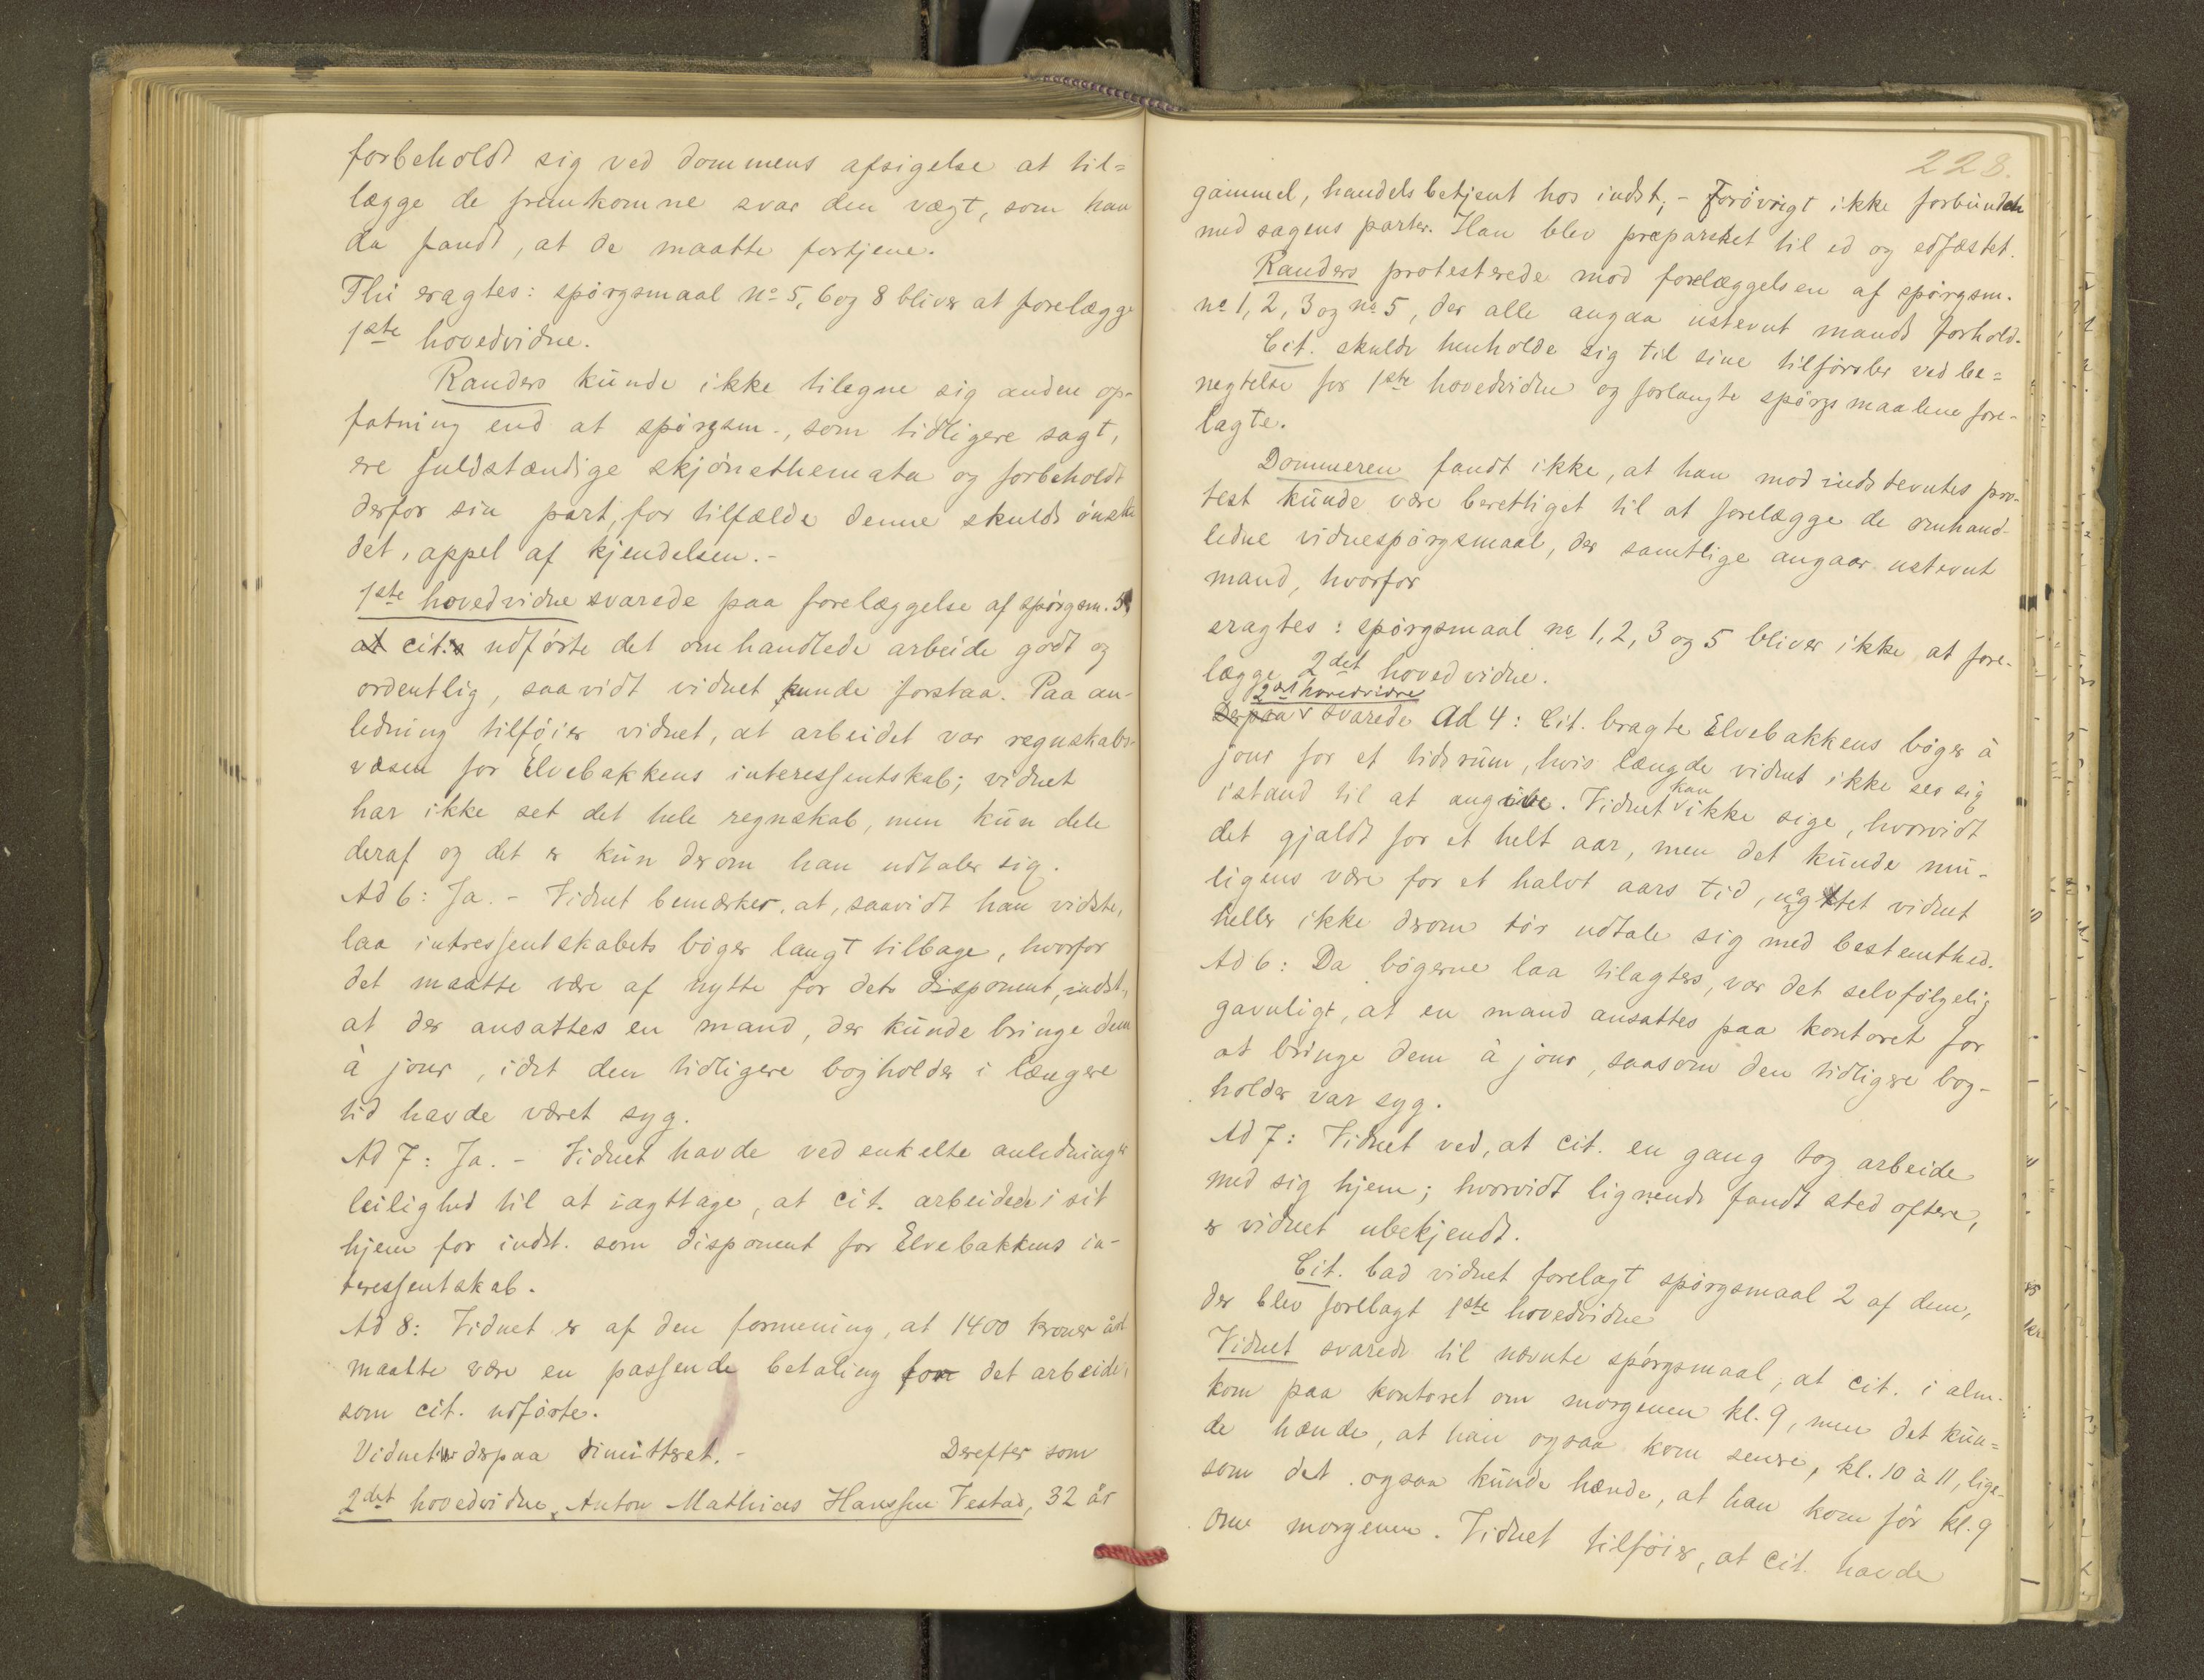 forbeholdt sig ved dommens afsigelse at til=
lægge de fremkomne svar den vægt, som han
da fandt, at de maatte fortjene.
Thi eragtes: spørgsmaal no 5, 6 og 8 bliver at forelægge
1ste hovedvidne.
Randers kunde ikke tilegne sig anden op-
fatning end at spørgsm., som tidligere sagt,
ere fuldstændige skjønsthemata og forbeholdt
derfor sin part, for tilfælde denne skulde ønske
det, appel af kjendelsen.-
1ste hovedvidne svarede paa forelæggelse af spørgsm. 5
at cit. udførte det omhandlede arbeide godt og
ordentlig, saavidt vidnet kunde forstaa. Paa an-
ledning tilføier vidnet, at arbeidet var regnskabs-
væsen for Elvebakkens interessentskab; vidnet
har ikke set det hele regnskab, men kun dele
deraf og det er kun derom han udtaler sig.
Ad 6: Ja. - Vidnet bemærker, at, saavidt han vidste,
laa intressentskabets bøger langt tilbage, hvorfor
det maatte være af nytte for dets disponent, indst.,
at der ansattes en mand, der kunde bringe dem
à jour, idet den tidligere bogholder i længere
tid havde været syg.
Ad 7: Ja. - Vidnet havde ved enkelte anledninger
leilighed til at iagttage, at cit. arbeidede i sit
hjem for indst. som disponent for Elvebakkens in-
teressentskab.
Ad 8: Vidnet er af den formening, at 1400 kroner årl
maatte være en passende betaling for det arbeide,
som cit. udførte.
Vidnet derpaa dimitteret. - Derefter som
2det hovedvidne, Anton Mathias Hanssen Vestad, 32 år
228.
gammel, handelsbetjent hos indst; - Forøvrigt ikke forbunden
med sagens parter. Han blev præpareret til ed og edfæstet.
Randers protesterede mod forelæggelsen af spørgsm.
no 1, 2, 3 og no 5, der alle angaa ustevnt mands forhold.
Cit. skulde henholde sig til sine tilførsler ved be=
negtelse for 1ste hovedvidne og forlangte spørgsmaalene fore-
lagte.
Dommeren fandt ikke, at han mod indstevntes pro-
test kunde være berettiget til at forelægge de omhand-
ledne vidnespørgsmaal, der samtlige angaar ustevnt
mand, hvorfor
eragtes: spørgsmaal no 1, 2, 3 og 5 bliver ikke at fore-
lægge 2det hovedvidne.
2det hovedvidne
Derpaa svarede Ad 4: Cit. bragte Elvebakkens bøger à
jour for et tidsrum, hvis længde vidnet ikke ser sig
istand til at angive. Vidnet kan ikke sige, hvorvidt
det gjaldt for et helt aar, men det kunde mu-
ligens være for et halvt aars tid, uagtet vidnet
heller ikke derom tør udtale sig med bestemthed.
Ad 6: Da bøgerne laa tilagters, var det selvfølgelig
gavnligt, at en mand ansattes paa kontoret for
at bringe dem à jour, saasom den tidligere bog-
holder var syg.
Ad 7: Vidnet ved, at cit. en gang tog arbeide
med sig hjem; hvorvidt lignende fandt sted oftere,
er vidnet ubekjendt.
Cit. bad vidnet forelagt spørgsmaal 2 af dem,
der blev forelagt 1ste hovedvidne
Vidnet svarede til nævnte spørgsmaal, at cit. i alm.
kom paa kontoret om morgenen kl. 9, men det kun=
de hænde, at han ogsaa kom senere, kl. 10 à 11, lige-
som det ogsaa kunde hænde, at han kom før kl. 9
om morgenen. Vidnet tilføier, at cit. havde